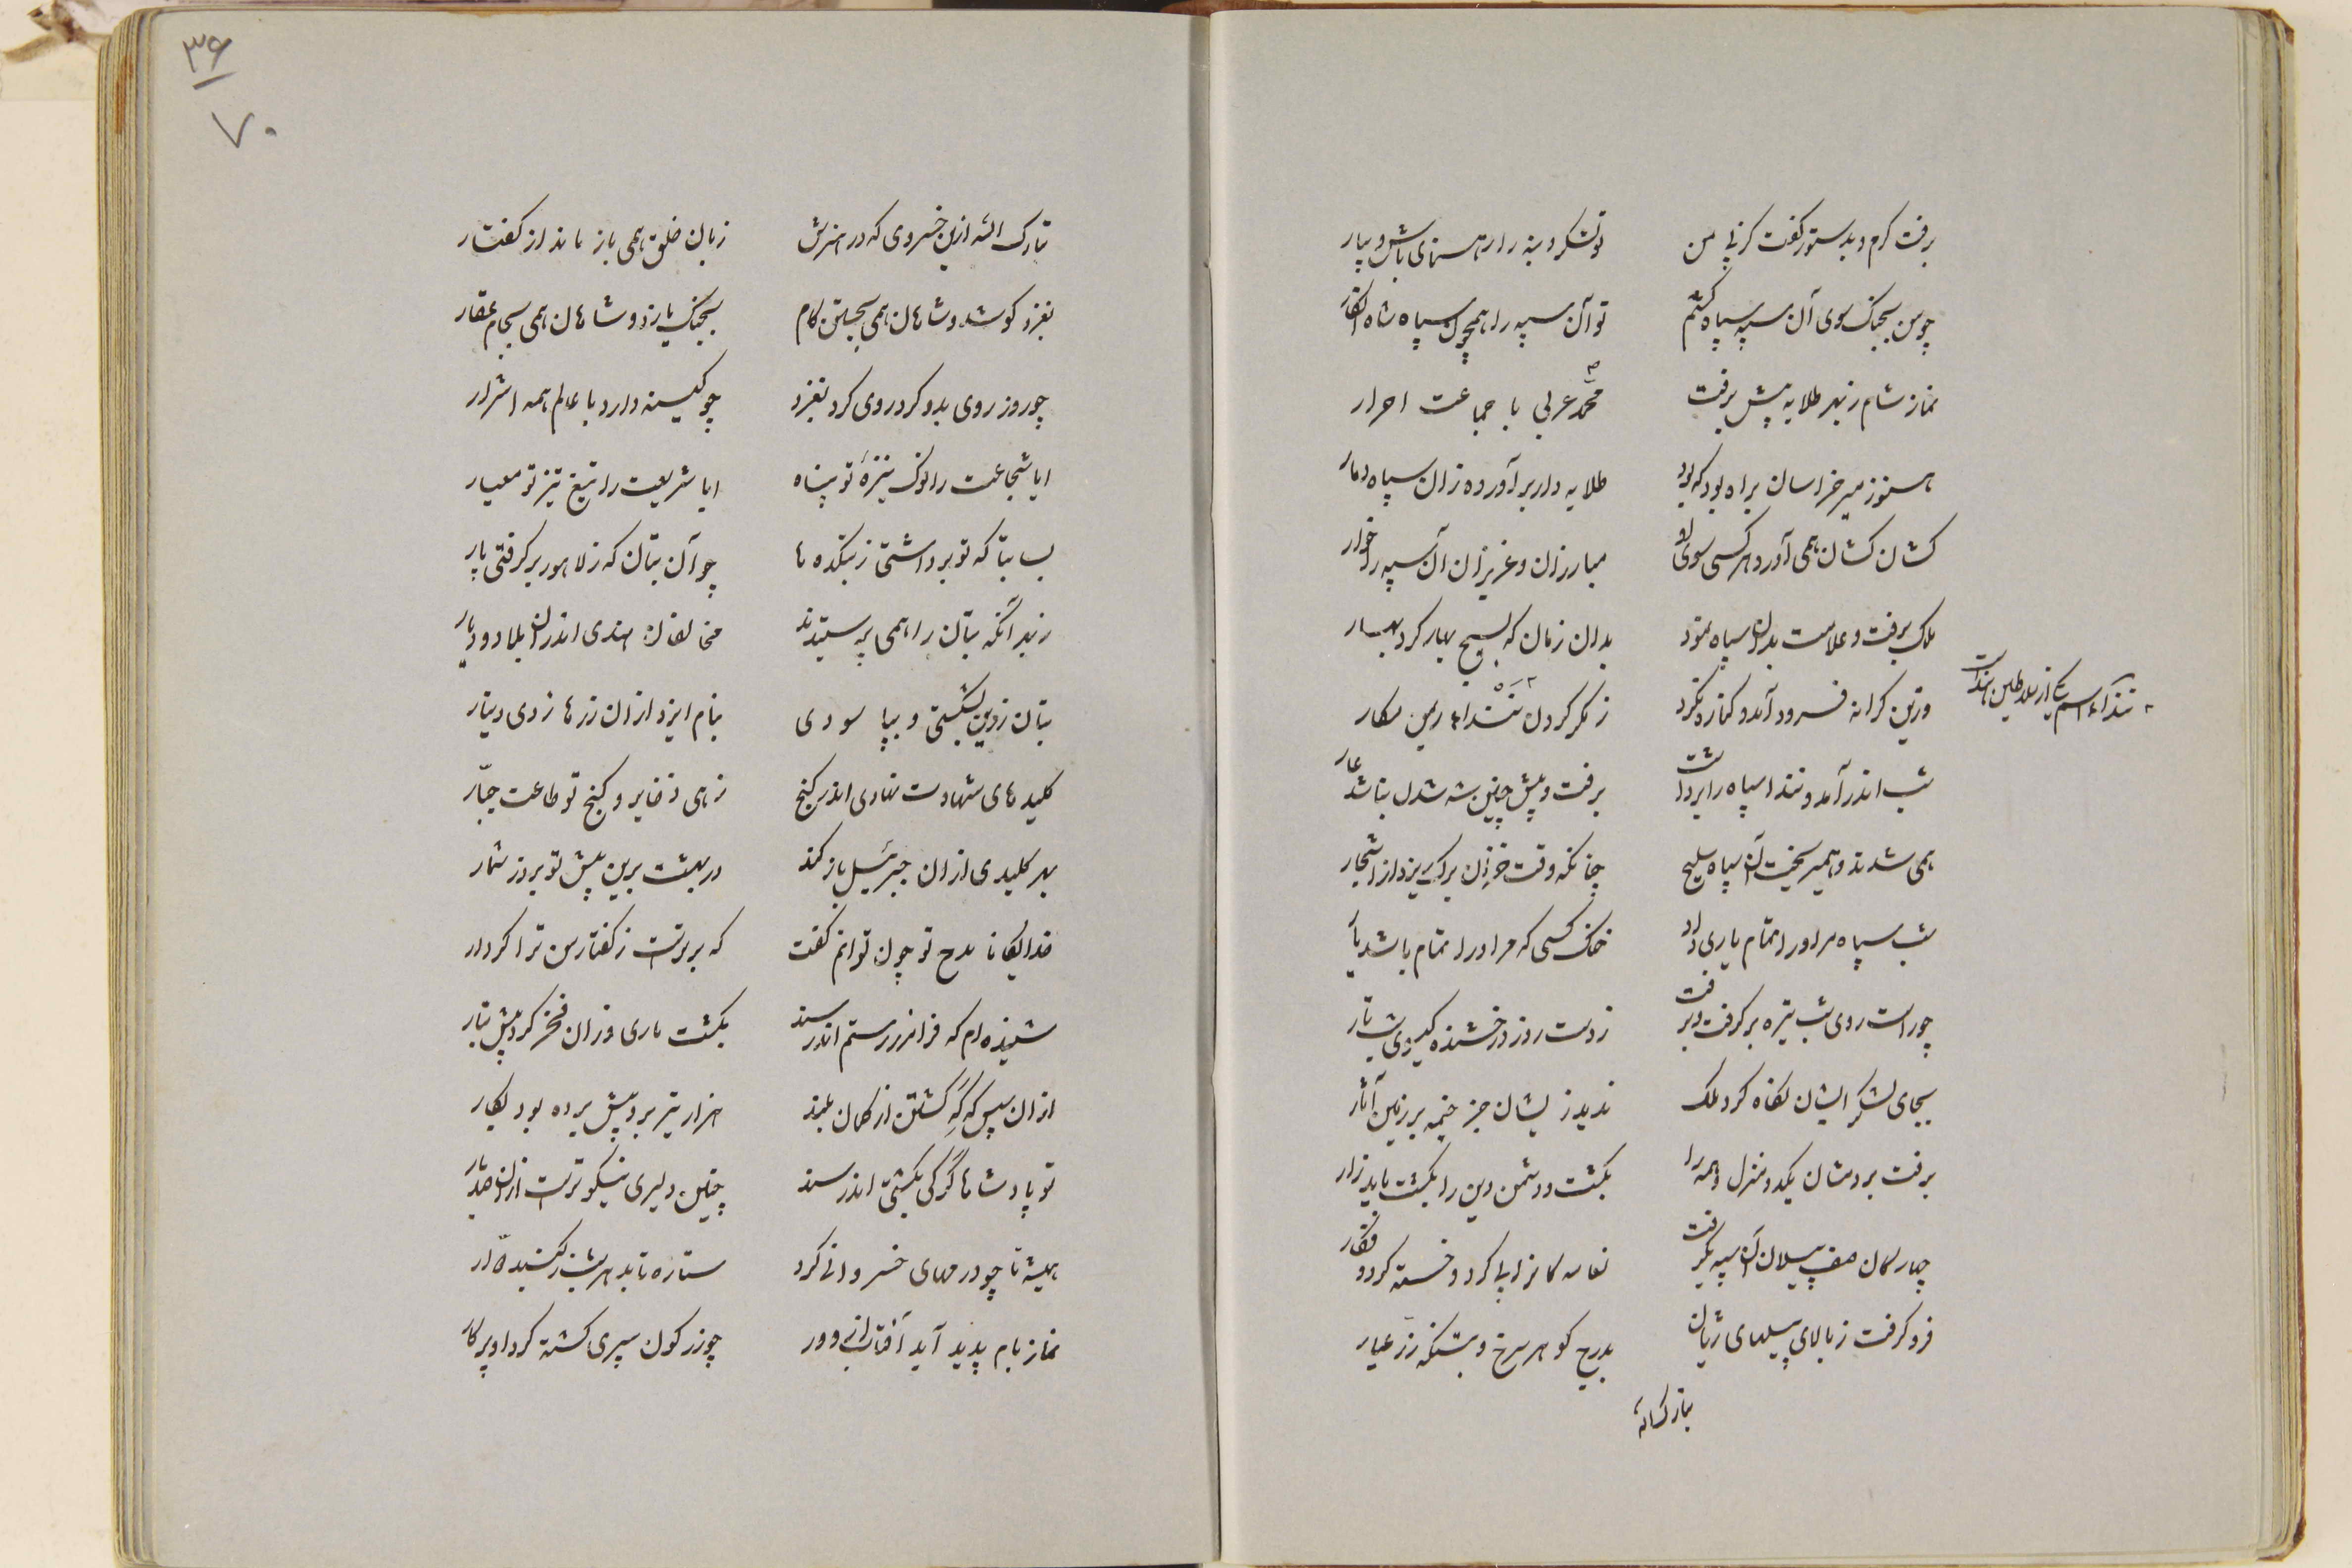 برفت گرم و بدستور گفت کز پی من
تو لشکر و بنه را رهنمای باش و بیار
چو من بجنگ سوی آن سپه سپاه کشم
تو آن سپه را همچون سپاه شاه انگار
نماز شام ز بهر طلایه پیش برفت
محمد عربی با جماعت احرار
هنوز میر خراسان براه بود که بود
طلایه دار برآورده زان سپاه دمار
کشان کشان همی آورد هر کسی سوی او
مبارزان و عزیزان آن سپه را خوار
ملک برفت و علامت بدان سپاه نمود
بدان زمان که بسیچ بهار کرد بهار
وزین کرانه فرود آمد و کناره نکرد
ز مکر کردن نندا
نندا اسم یکی از سلاطین
شب اندر آمد و نندا سپاه را برداشت
برفت و پیش چنین شه شدن نباشد عار
همی شدند و همیریخت آن سپاه سلیح
چنانکه وقت خزان برگ ریزد از اشجار
شب سپاه مر او را تمام یاری داد
خنک کسی که مر او را تمام باشد یار
چو راست روی شب تیره برگرفت و برفت
ز دست روز درخشنده گیسوی شب تار
بجای لشکر ایشان نگاه کرد ملک
ندید زیشان جز خیمه بر زمین آثار
برفت بر دمشان یکدو منزل و همه را
بکشت و دشمن دین را بکشت باید زار
چهارگان صف پیلان آن سپه بگرفت
فرو گرفت ز بالای پیلهای ژیان
بدرج گوهر سرخ و بتنگه زر عیار
۳۶
۷۰
تبارک الله ازین خسروی که در هنرش
زبان خلق همی باز ماند از گفتار
بغزو کوشد و شاهان همی بجستن کام
بجنگ یازد و شاهان همی بجام عقار
چو روز روی بدو کرد روی کرد بغزو
چو کینه دارد با عالم همه اشرار
ایا شجاعت را نوک نیزهٔ تو پناه
ایا شریعت را تیغ تیز تو معیار
بسا بتا که تو برداشتی ز بتکده ها
چو آن بتان که ز لاهور برگرفتی پار
ز بهر آنکه بتان را همی پرستیدند
مخالفان هدی اندران بلاد و دیار
بتان زرین بشکستی و بپا سودی
بنام ایزد از آن زرها زدی دینار
کلیدهای شهادت نهادی اندر گنج
زهی ذخایر و گنج تو طاعت جبّار
بهر کلیدی از آن جبرئیل باز کند
در بهشت برین پیش تو بروز شمار
خدایگانا مدح تو چون توانم گفت
که برترست ز گفتار من ترا کردار
شنیده ام که فرامرز رستم اندر سند
بکشت ماری وزان فخر کرد پیش تبار
از آن سپس که گه کشتن از کمان بلند
هزار تیر برو پیش برده بود بکار
تو پادشاها گرگی بکشتی اندر سند
چنین دلیری نیکوترست از آن صدبار
همیشه تا چو درمهای خسروانی گرد
ستاره تابد هر شب ز گنبد دوّار
نماز بام پدید آید آفتاب از دور
چو زر گون سپری گشته گرد او پرگار